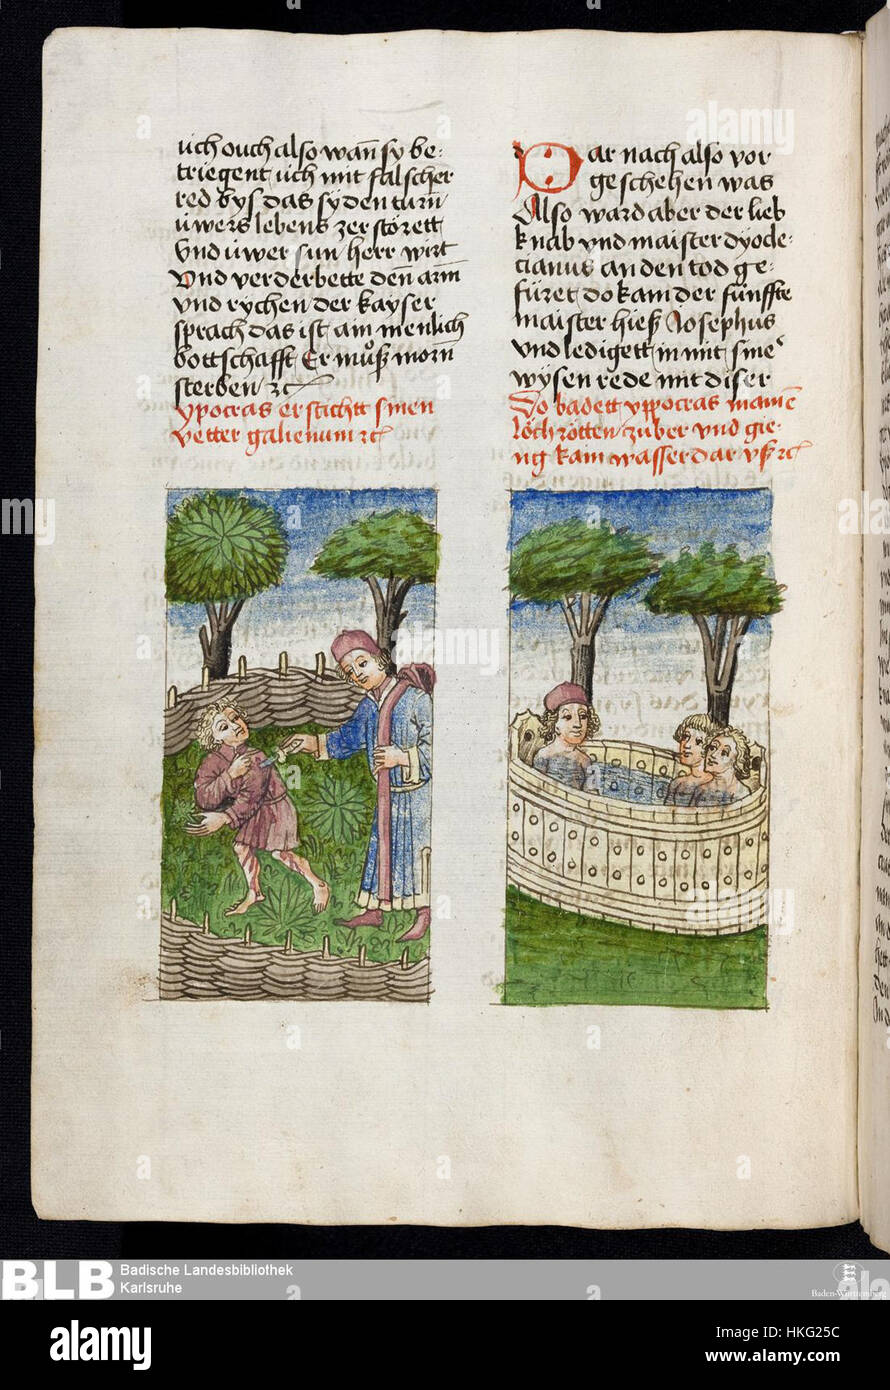 üch ouch also wañ sy be:
triegent üch mit falscher
red bys das sy den turn
üwers lebens zerstörett
Vnd üwer sun herr wirt
Vnd verderbette den arm̃
vnd rychen der kayser
sprach das ist ain menlich
bottschafft Er müß morn
sterben zc
ypocras ersticht sinen
vetter galienum zc
Dar nach also vor
geschehen was
Also ward aber der lieb
knab vnd maister dyocle:
cianus an den tod ge:
füret do kam der fünffte
maister hieß Josephus
vnd ledigett in mit sine
wysen rede mit diser
Do badett yppocras in aine
löchrötten zuber vnd gie:
ng kain wasser dar vß zc
BLB
Badische Landesbibliothek
Karlsruhe
Baden-Württemberg
alamy
Image ID: HKG25C
www.alamy.com